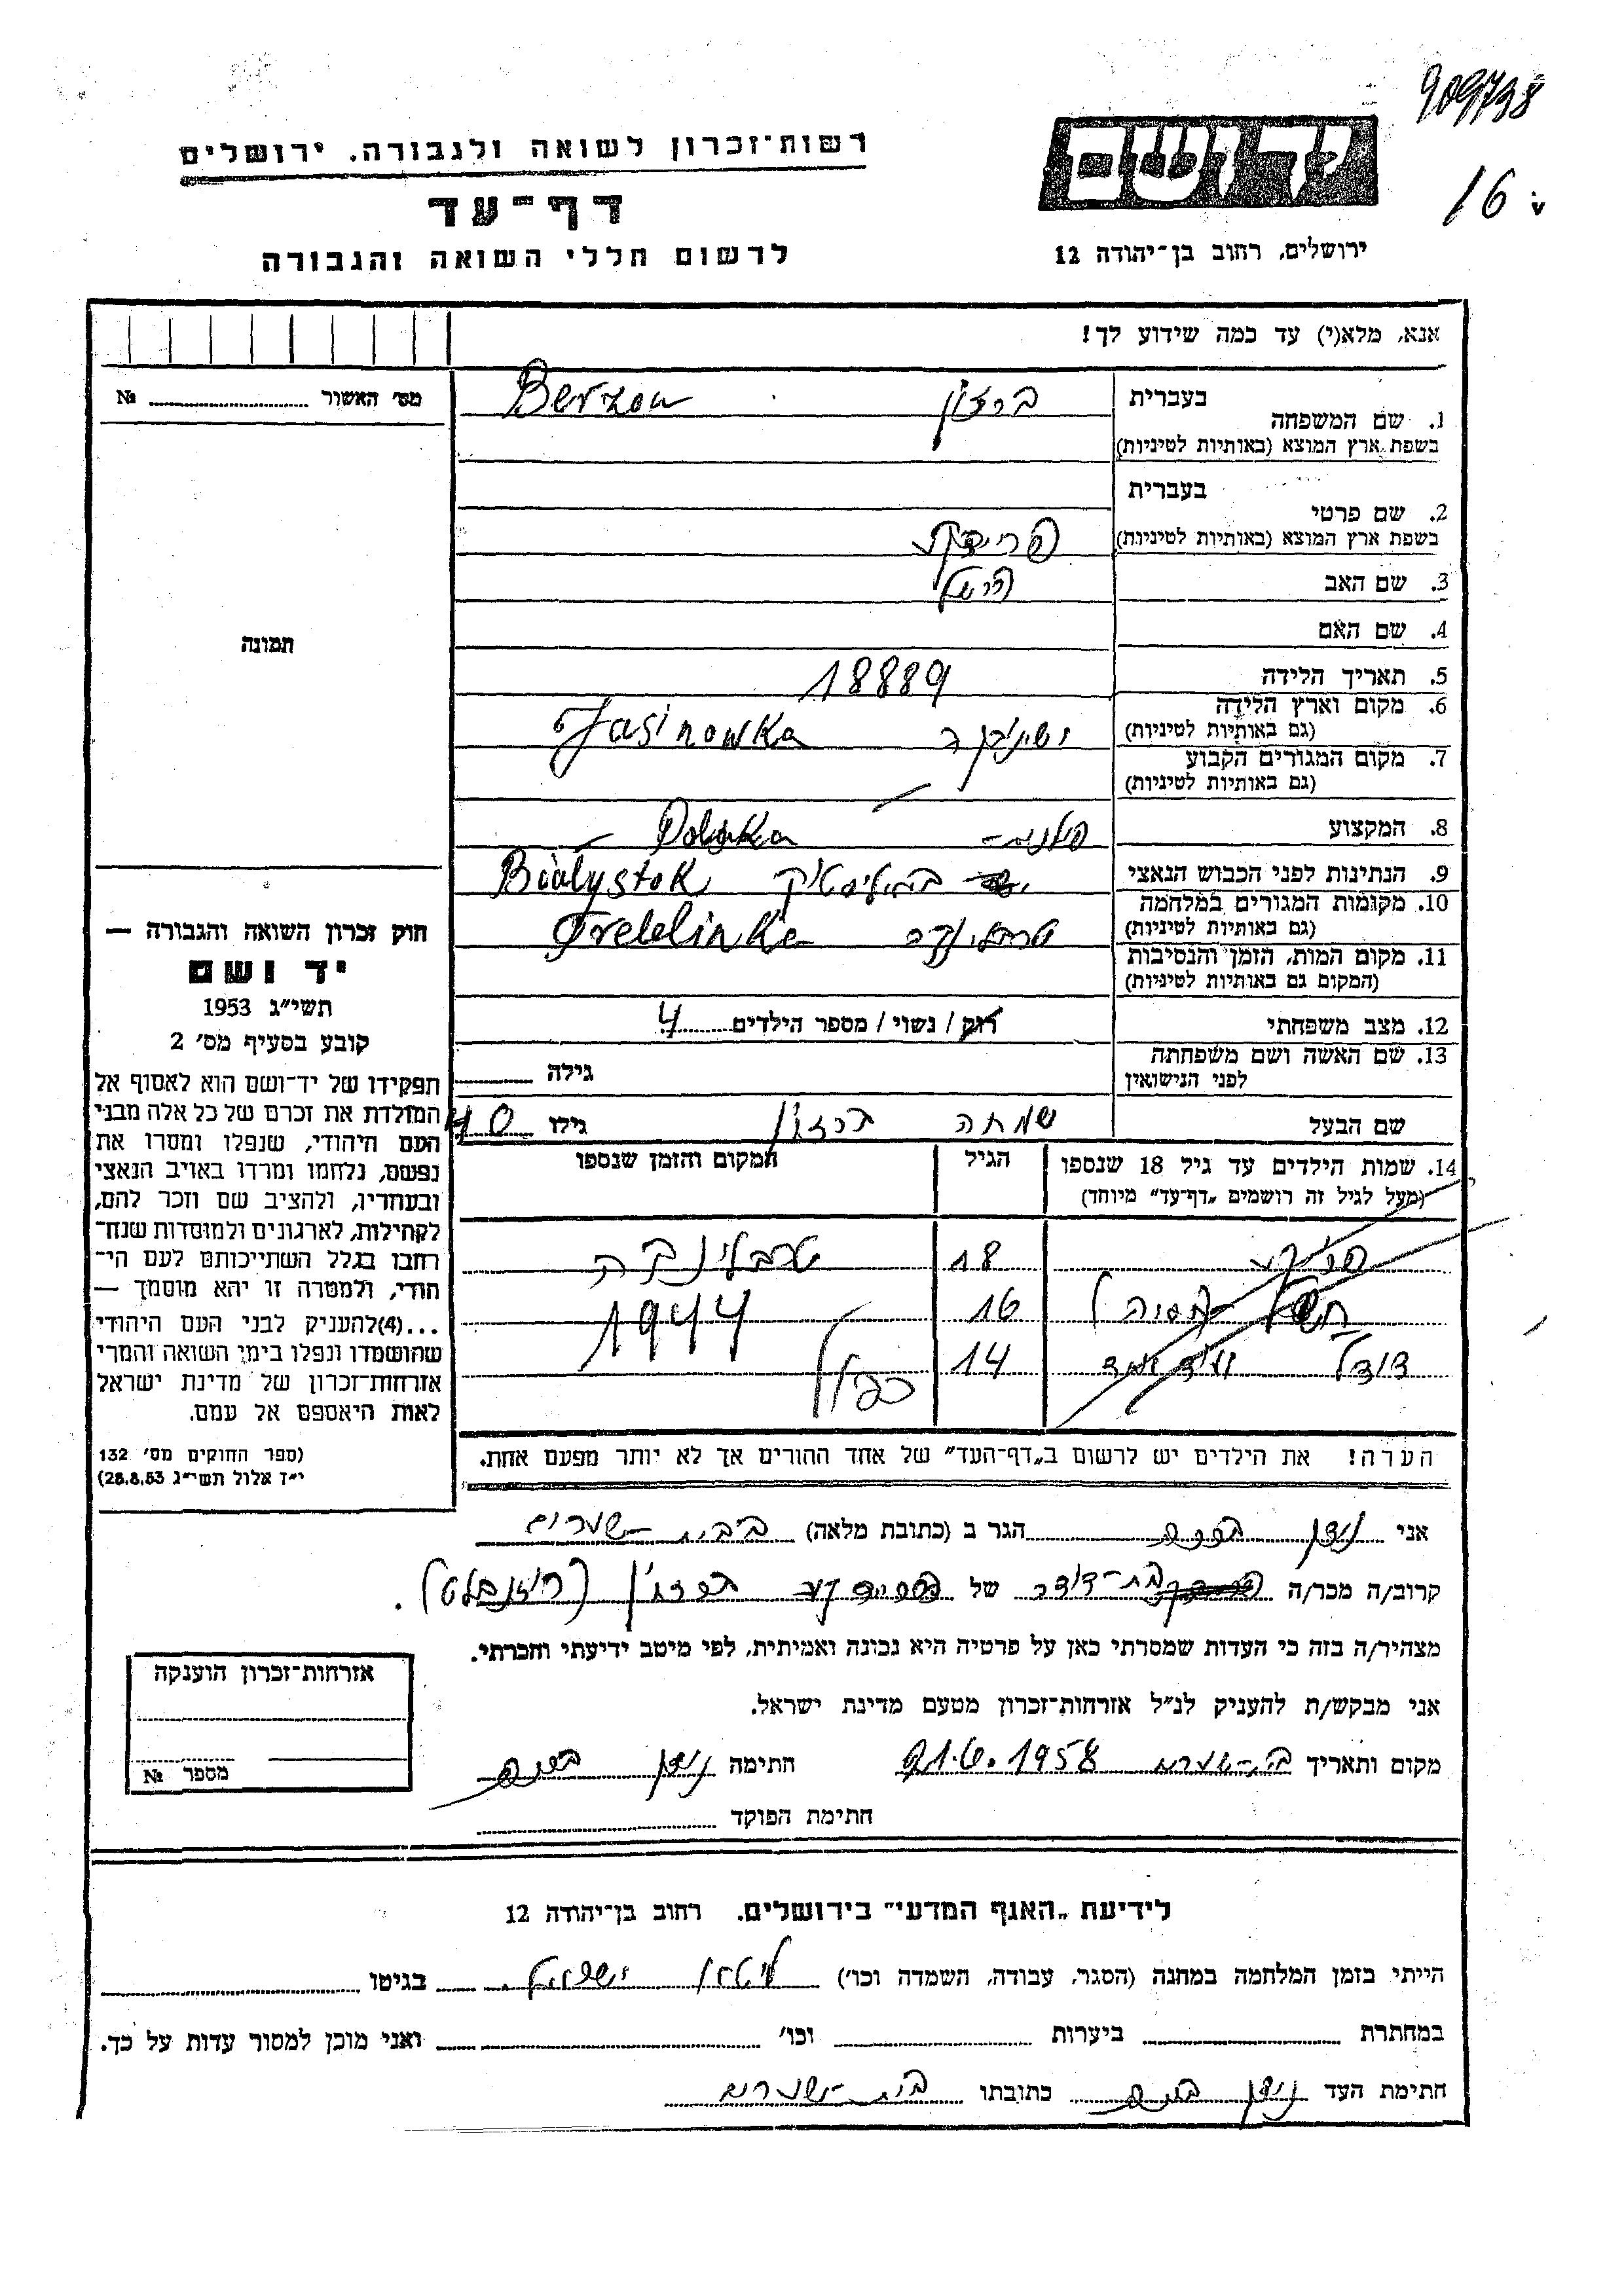 909798
16 v
יד ושם
רשות־זכרון לשואה ולגבורה. ירושלים
דף־עד
לרשום חללי השואה והגבורה
ירושלים, רחוב בן־יהודה 12
אנא, מלא(י) עד כמה שידוע לך!
מס' האשור №
תמונה
1. שם המשפחה בעברית ברזון Berzon
בשפת ארץ המוצא (באותיות לטיניות)
2. שם פרטי בעברית
בשפת ארץ המוצא (באותיות לטיניות) פריידקע
3. שם האב הרשל
4. שם האם
5. תאריך הלידה 18889
6. מקום וארץ הלידה
(גם באותיות לטיניות) ישינובקה Jasinowka
7. מקום המגורים הקבוע
(גם באותיות לטיניות)
8. המקצוע
9. הנתינות לפני הכבוש הנאצי
10. מקומות המגורים במלחמה
(גם באותיות לטיניות) Bialystok
11. מקום המות, הזמן והנסיבות
(המקום גם באותיות לטיניות) טרבלינקה Treblinka
12. מצב משפחתי רוק / נשוי / מספר הילדים 4
13. שם האשה ושם משפחתה
לפני הנישואין גילה
שם הבעל שמחה ברזון גילו 40
14. שמות הילדים עד גיל 18 שנספו הגיל המקום והזמן שנספו
(מעל לגיל זה רושמים „דף־עד” מיוחד)
18 טרבלינקה
16 1944
דודל 14 כפול
הערה! את הילדים יש לרשום ב„דף־העד” של אחד ההורים אך לא יותר מפעם אחת.
חוק זכרון השואה והגבורה —
יד ושם
תשי״ג 1953
קובע בסעיף מס' 2
תפקידו של יד־ושם הוא לאסוף אל
המולדת את זכרם של כל אלה מבני
העם היהודי, שנפלו ומסרו את
נפשם, נלחמו ומרדו באויב הנאצי
ובעוזריו, ולהציב שם וזכר להם,
לקהילות, לארגונים ולמוסדות שנח־
רבו בגלל השתייכותם לעם הי־
הודי, ולמטרה זו יהא מוסמך —
...(4)להעניק לבני העם היהודי
שהושמדו ונפלו בימי השואה והמרי
אזרחות־זכרון של מדינת ישראל
לאות היאספם אל עמם.
(ספר החוקים מס' 132
י״ד אלול תשי״ג 25.8.53)
אני הגר ב (כתובת מלאה) בבית שערים
קרוב/ה מכר/ה בת־דודה של פריידקע ברזון (רוזנבלט).
מצהיר/ה בזה כי העדות שמסרתי כאן על פרטיה היא נכונה ואמיתית, לפי מיטב ידיעתי והכרתי.
אני מבקש/ת להעניק לנ״ל אזרחות־זכרון מטעם מדינת ישראל.
מקום ותאריך בית־שערים 21.6.1958 חתימה
חתימת הפוקד
אזרחות־זכרון הוענקה
מספר №
לידיעת „האגף המדעי” בירושלים. רחוב בן־יהודה 12
הייתי בזמן המלחמה במחנה (הסגר, עבודה, השמדה וכו') בגיטו
במחתרת ביערות וכו' ואני מוכן למסור עדות על כך.
חתימת העד כתובתו בית שערים